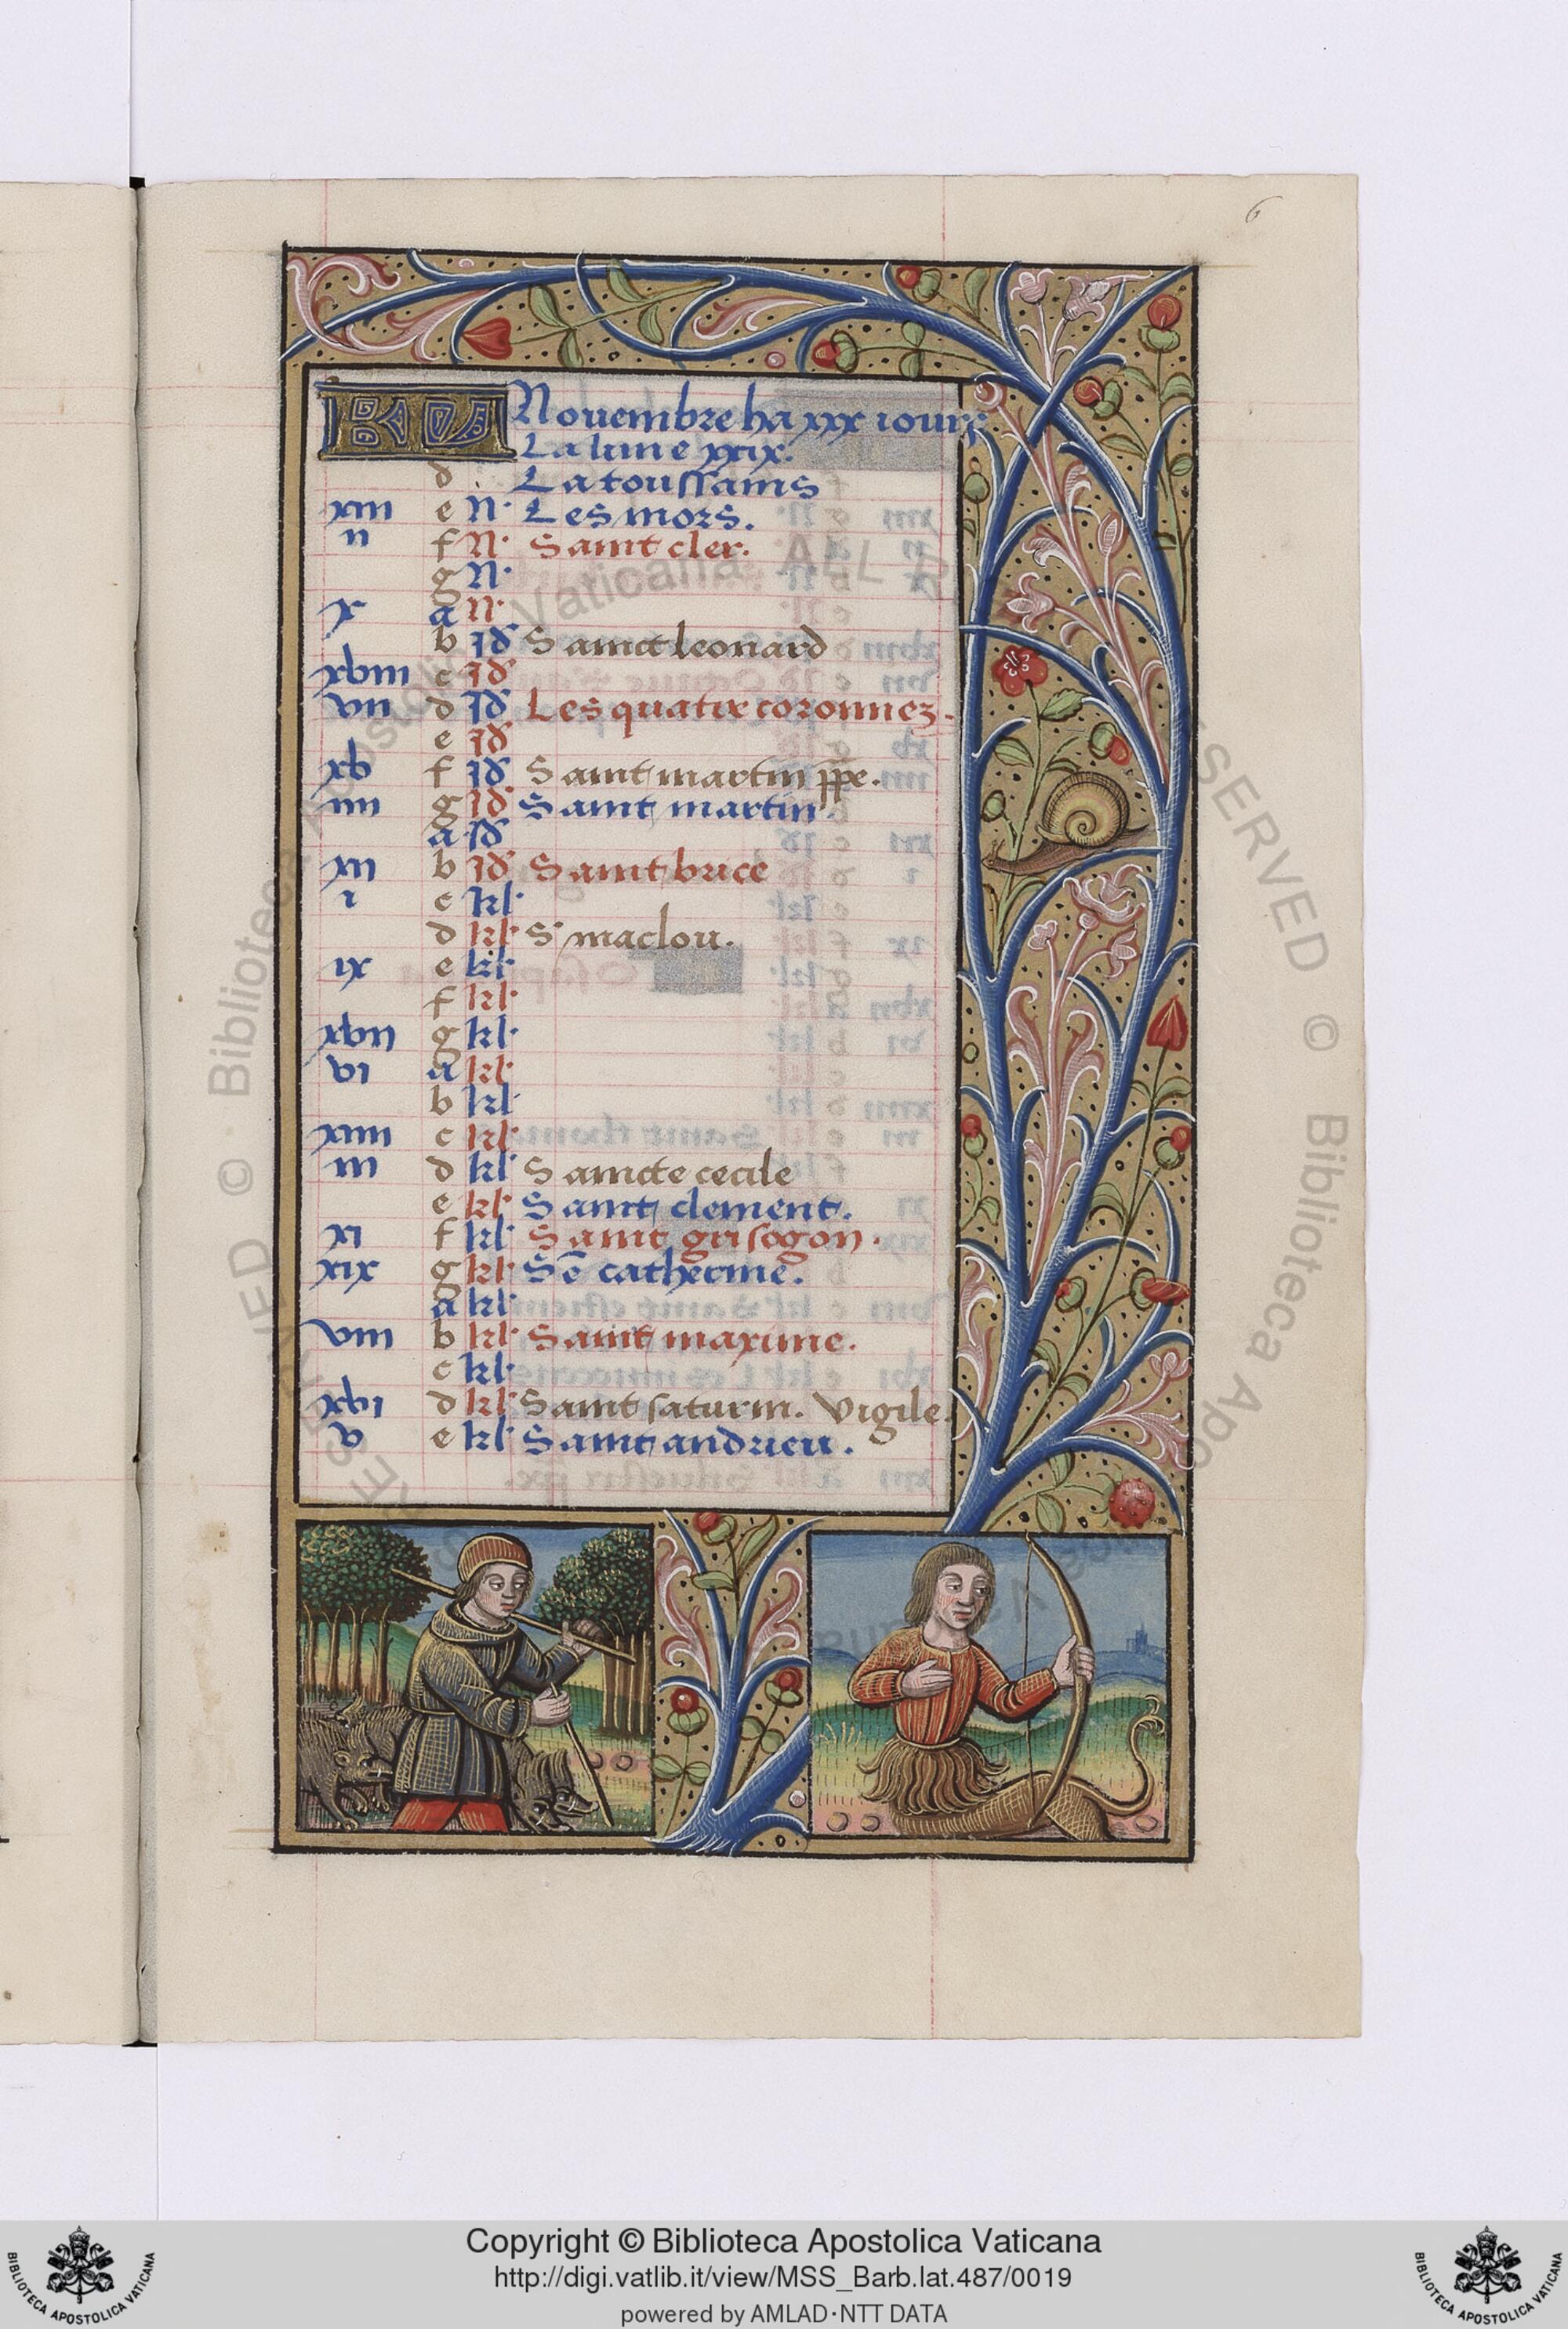 6
KL Nouembre ha xxx iours
La lune xxix.
d La toussains
xiii e N. Les mors.
ii f N. Saint cler.
g N.
x a N.
b id Sainct leonard
xbiii c id
vii d id Les quatre coronnez.
e id
xb f id Saint martin ppe.
iiii g id Saint martin.
a id
xii b id Saint brice
i c kl
d kl S maclou.
ix e kl
f kl
xbii g kl
vi a kl
b kl
xiiii c kl
iii d kl Saincte cecile
e kl Saint clement.
xi f kl Saint grisogon.
xix g kl Sē catherine.
a kl
viii b kl Saint maxime.
c kl
xbi d kl Saint saturin. Vigile.
v e kl Saint andrieu.
Copyright © Biblioteca Apostolica Vaticana
http://digi.vatlib.it/view/MSS_Barb.lat.487/0019
powered by AMLAD·NTT DATA
BIBLIOTECA APOSTOLICA VATICANA
BIBLIOTECA APOSTOLICA VATICANA